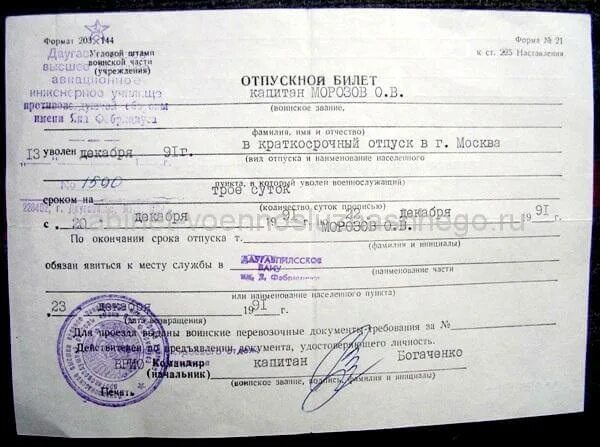 Формат 203×144
Форма № 21
Угловой штамп
воинской части
(учреждения)
к ст. 295 Наставления
высшее
авиационное
инженерное училище
противовоздушной обороны
имени Яна Фабрициуса
ОТПУСКНОЙ БИЛЕТ
капитан МОРОЗОВ О.В.
(воинское звание,
фамилия, имя и отчество)
"13" декабря 91г.
уволен в краткосрочный отпуск в г. Москва
(вид отпуска и наименование населенного
№ 1590
пункта, в который уволен военнослужащий)
сроком на трое суток
228402, г.
(количество суток прописью)
с 20 декабря 1991 декабря 1991 г.
По окончании срока отпуска т. МОРОЗОВ О.В.
(фамилия и инициалы)
обязан явиться к месту службы в ДАУГАВПИЛССКОЕ
ВАИУ
им. Я. Фабрициуса
(наименование части
или наименование населенного пункта)
23 декабря 1991 г.
(дата возвращения)
Для проезда выданы воинские перевозочные документы требования за №
Действителен по предъявлении документа, удостоверяющего личность.
ВРИО Командир капитан Богаченко
(начальник)
(воинское звание, подпись, фамилия и инициалы)
Печать
kabinet-voennosluzhashhego.ru